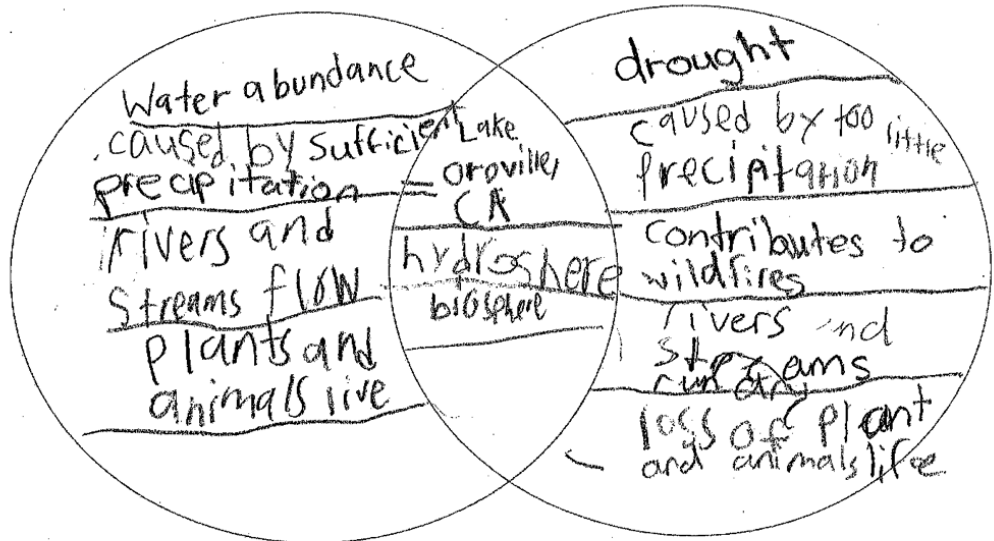 Water abundance
caused by sufficient
precipitation
rivers and
streams flow
plants and
animals live
Lake
oroville,
CA
hydroshere
biosphere
drought
caused by too little
precipitation
contributes to
wildfires
rivers and
streams
run dry
loss of plant
and animals life